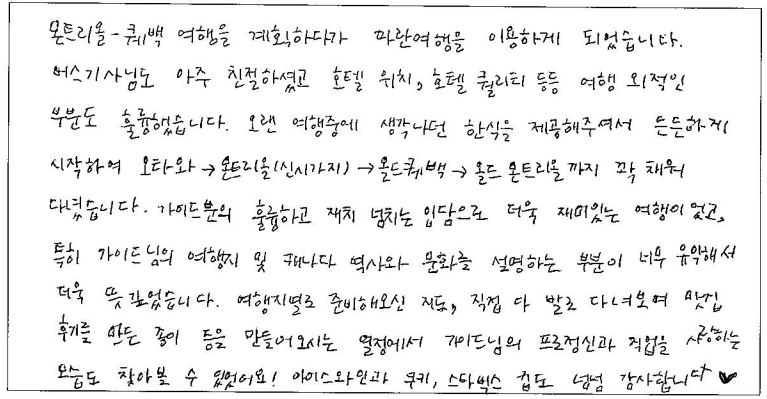 몬트리올-퀘백 여행을 계획하다가 파란여행을 이용하게 되었습니다.
버스기사님도 아주 친절하셨고 호텔 위치, 호텔 퀄리티 등등 여행 외적인
부분도 훌륭했습니다. 오랜 여행중에 생각나던 한식을 제공해주셔서 든든하게
시작하여 오타와→몬트리올(신시가지)→올드퀘백→올드 몬트리올까지 꽉 채워
다녔습니다. 가이드분의 훌륭하고 재치 넘치는 입담으로 더욱 재미있는 여행이었고,
특히 가이드님의 여행지 및 캐나다 역사와 문화를 설명하는 부분이 너무 유익해서
더욱 뜻깊었습니다. 여행지별로 준비해오신 지도, 직접 다 발로 다녀보며 맛집
후기를 만든 종이 등을 만들어오시는 열정에서 가이드님의 프로정신과 직업을 사랑하는
모습도 찾아볼 수 있었어요! 아이스와인과 쿠키, 스타벅스 컵도 넘넘 감사합니다 ♥